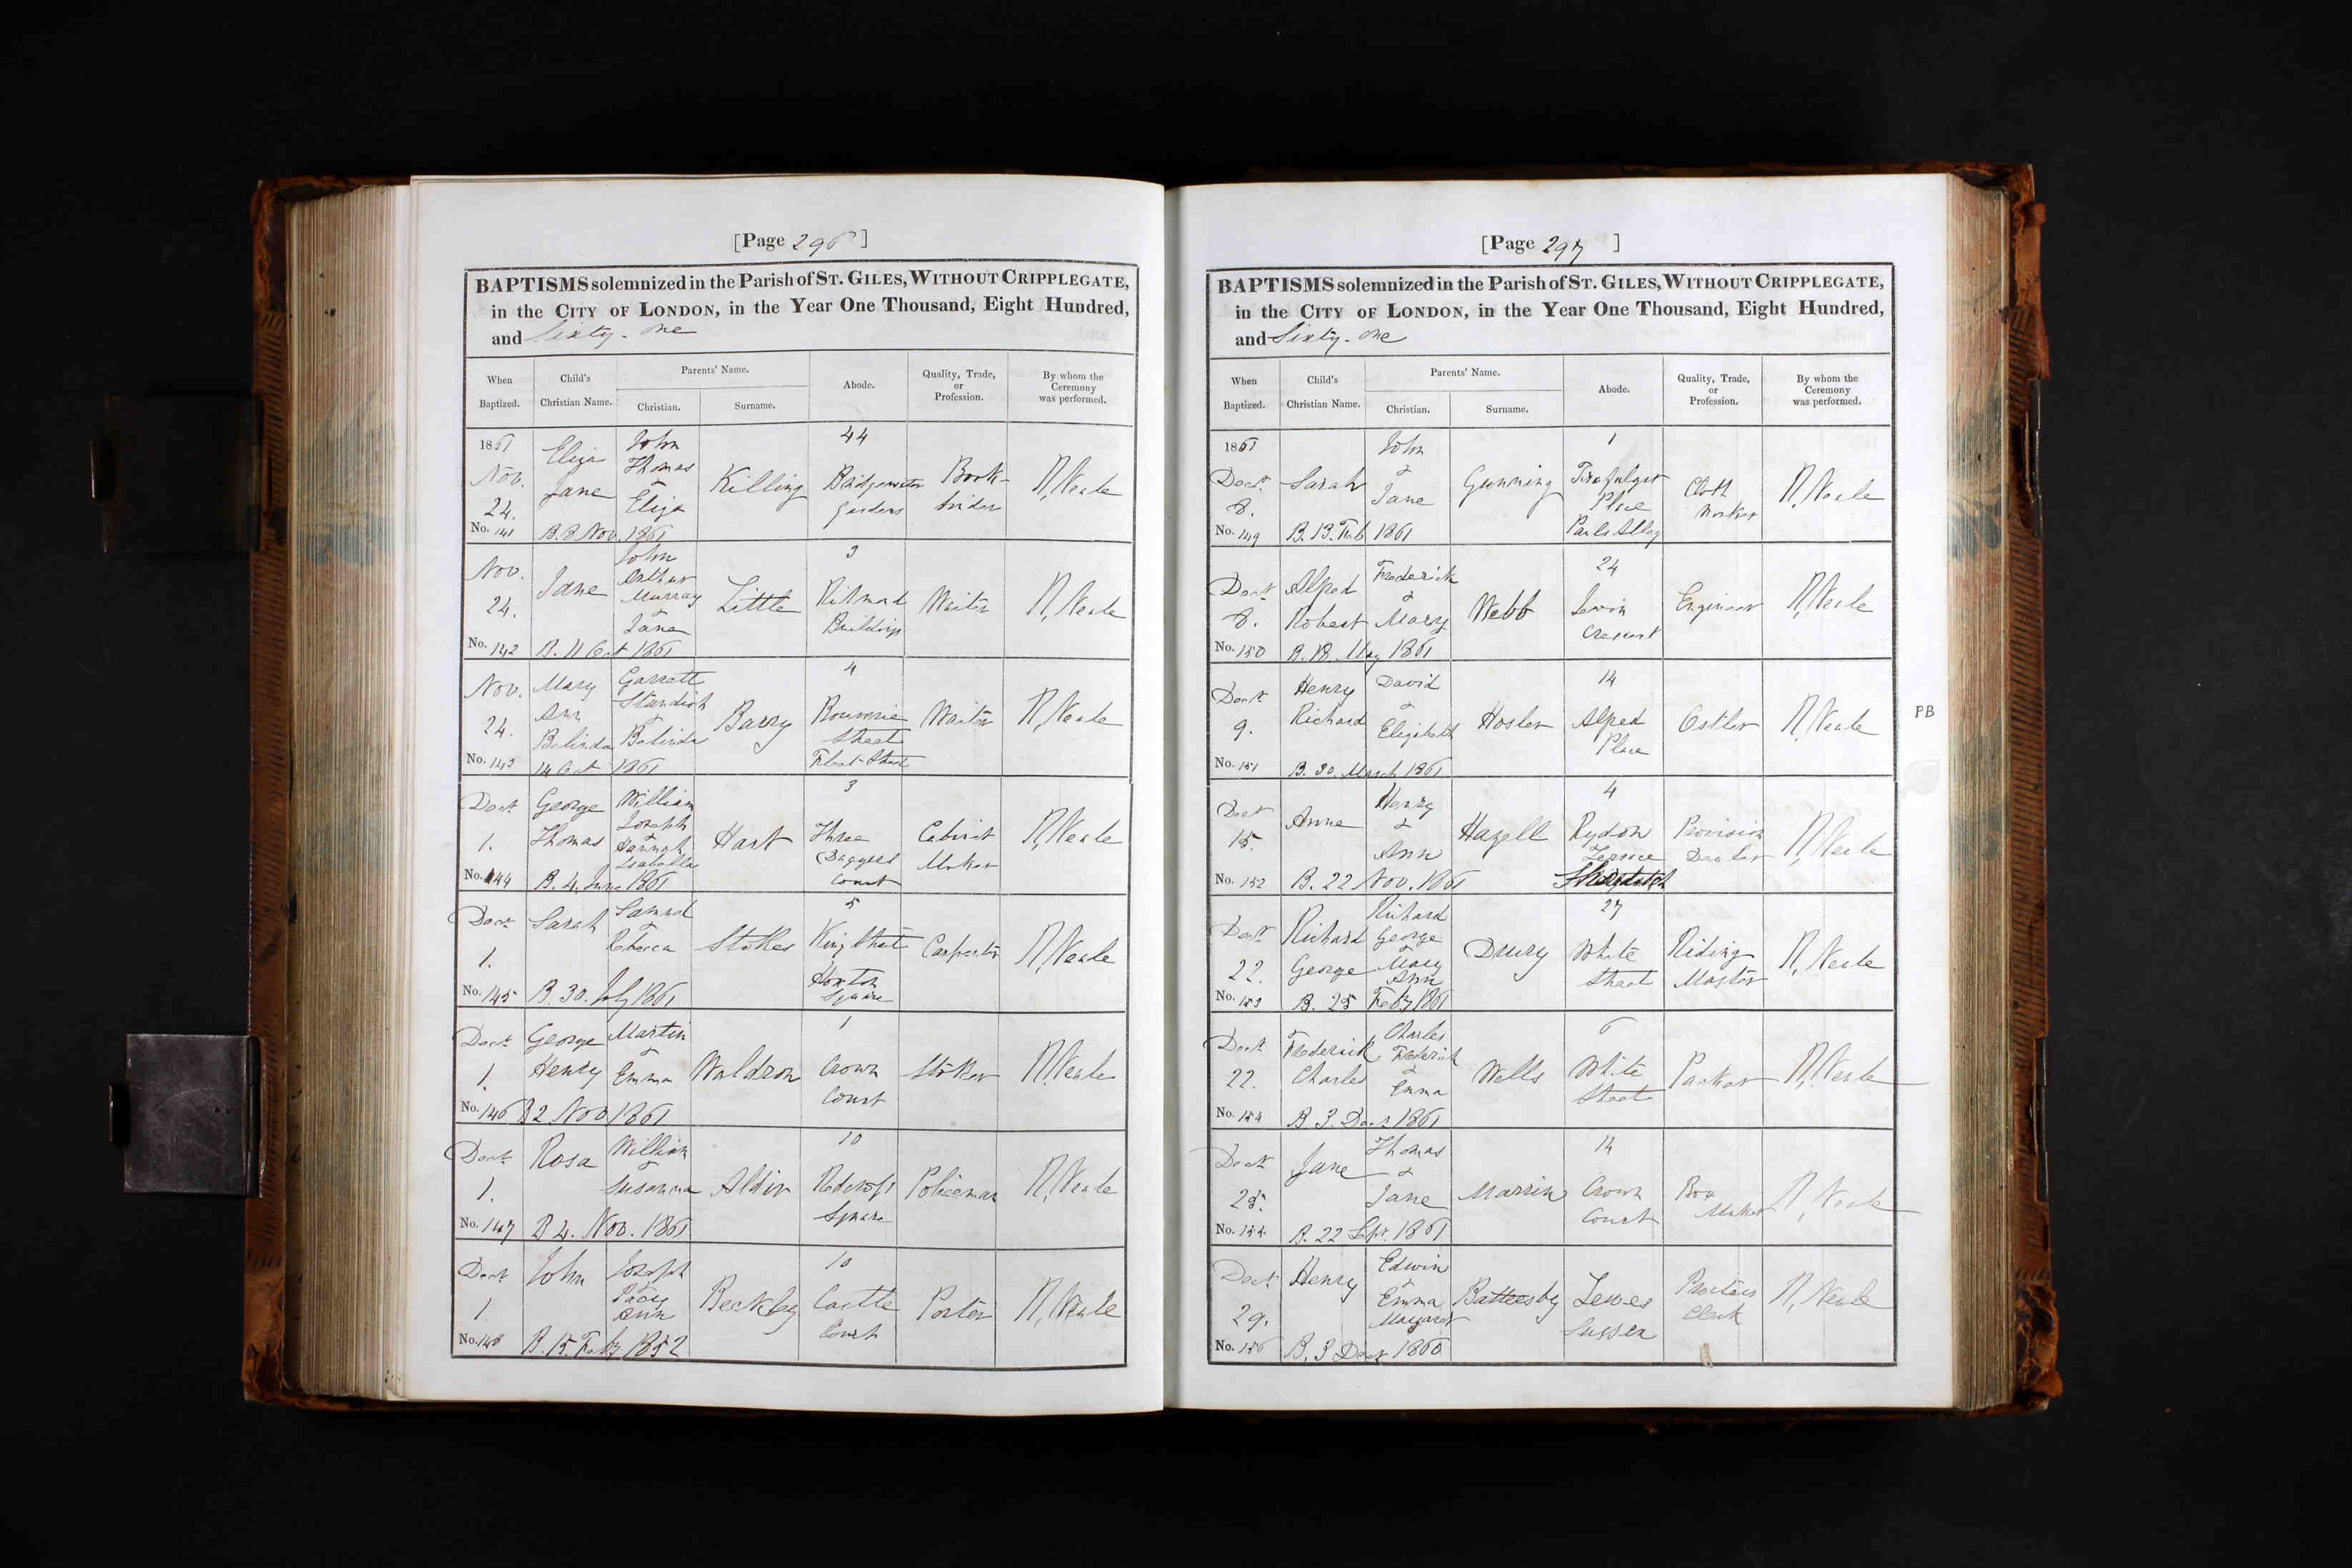 [Page 296]
BAPTISMS solemnized in the Parish of ST. GILES, WITHOUT CRIPPLEGATE,
in the CITY OF LONDON, in the Year One Thousand, Eight Hundred,
and Sixty-one
When Baptized. Child's Christian Name. Parents' Name. Christian. Surname. Abode. Quality, Trade, or Profession. By whom the Ceremony was performed.
1861 Nov. 24. No. 141
Eliza Jane
B. 8 Nov. 1861
John Thomas & Eliza
Killing
44 Bridgewater Gardens
Book-binder
N, Neale
Nov. 24. No. 142
Jane
B. 11 Oct 1861
John Arthur Murray & Jane
Little
3 Buildings
Waiter
N, Neale
Nov. 24. No. 143
Mary Ann Belinda
14 Oct 1861
Garrett Standish & Belinda
Barry
4 Bouverie Street Fleet Street
Waiter
N, Neale
Decr 1. No. 144
George Thomas
B. 4. June 1861
William Joseph & Hannah Isabella
Hart
3 Three Daggers Court
Cabinet Maker
N, Neale
Decr 1. No. 145
Sarah
B. 30. July 1861
Samuel & Rebecca
Stokes
5 King Street Hoxton Square
Carpenter
N, Neale
Decr 1. No. 146
George Henry
B 2 Nov 1861
Martin & Emma
Waldron
1 Crown Court
Stoker
N, Neale
Decr 1. No. 147
Rosa
B 4. Nov. 1861
William & Susanna
10 Redcross Square
Policeman
N, Neale
Decr 1. No. 148
John
B. 15. Feby 1852
Joseph & Ann
Beckley
10 Castle Court
Porter
N, Neale
[Page 297]
BAPTISMS solemnized in the Parish of ST. GILES, WITHOUT CRIPPLEGATE,
in the CITY OF LONDON, in the Year One Thousand, Eight Hundred,
and Sixty-one
When Baptized. Child's Christian Name. Parents' Name. Christian. Surname. Abode. Quality, Trade, or Profession. By whom the Ceremony was performed.
1861 Decr 8. No. 149
Sarah
B. 13. Feb 1861
John & Jane
Gunning
1 Trafalgar Place Pauls Alley
Cloth Worker
N, Neale
Decr 8. No. 150
Alfred Robert
B. 18. May 1861
Frederick & Mary
Webb
24 Jewin Crescent
Engineer
N, Neale
Decr 9. No. 151
Henry Richard
B. 30. March 1861
David & Elizabeth
Hosler
14 Alfred Place
Ostler
N, Neale
PB
Decr 15. No. 152
Anne
B. 22 Nov. 1861
Henry & Ann
Hazell
4 Rydon Terrace
Provision Dealer
N, Neale
Decr 22. No. 153
Richard George
B. 25 Feby 1861
Richard George & Mary Ann
Drury
27 White Street
Riding Master
N, Neale
Decr 22. No. 154
Frederick Charles
B. 3. Decr 1861
Charles Frederick & Emma
Wells
6 White Street
Packer
N, Neale
Decr 25. No. 155
Jane
B. 22 Sepr. 1861
Thomas & Jane
Marrin
14 Crown Court
Box Maker
N, Neale
Decr 29. No. 156
Henry
B. 3 Decr 1860
Edwin & Emma Margaret
Battersby
Lewes Sussex
Proctors Clerk
N, Neale